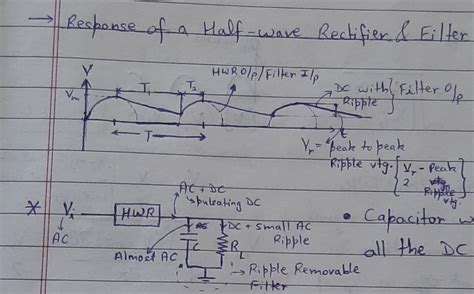 → Response of a Half-wave Rectifier & Filter
V
HWR O/p/Filter I/p
T₁
T₂
DC with Ripple } Filter O/p
Vm
T
t
Vr = peak to peak Ripple vtg.
Vr/2 - Peak Ripple vtg.
* Vs
AC
HWR
AC + DC
↳ pulsating DC
AC
DC + small AC
Ripple
C
RL
Almost AC
→ Ripple Removable
Filter
• Capacitor
all the DC